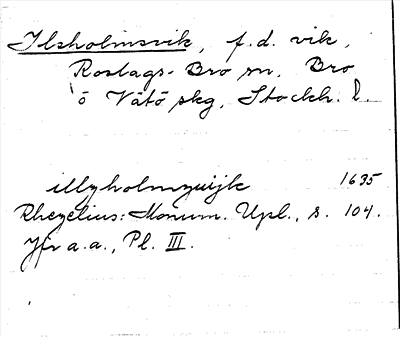 Ilsholmsvik, f.d. vik,
Roslags-Bro sn, Bro
o Vätö skg, Stockh. l.
illzholmzuijk 1635
Rhezelius: Monum. Upl., s. 104.
Jfr a.a., Pl. III.